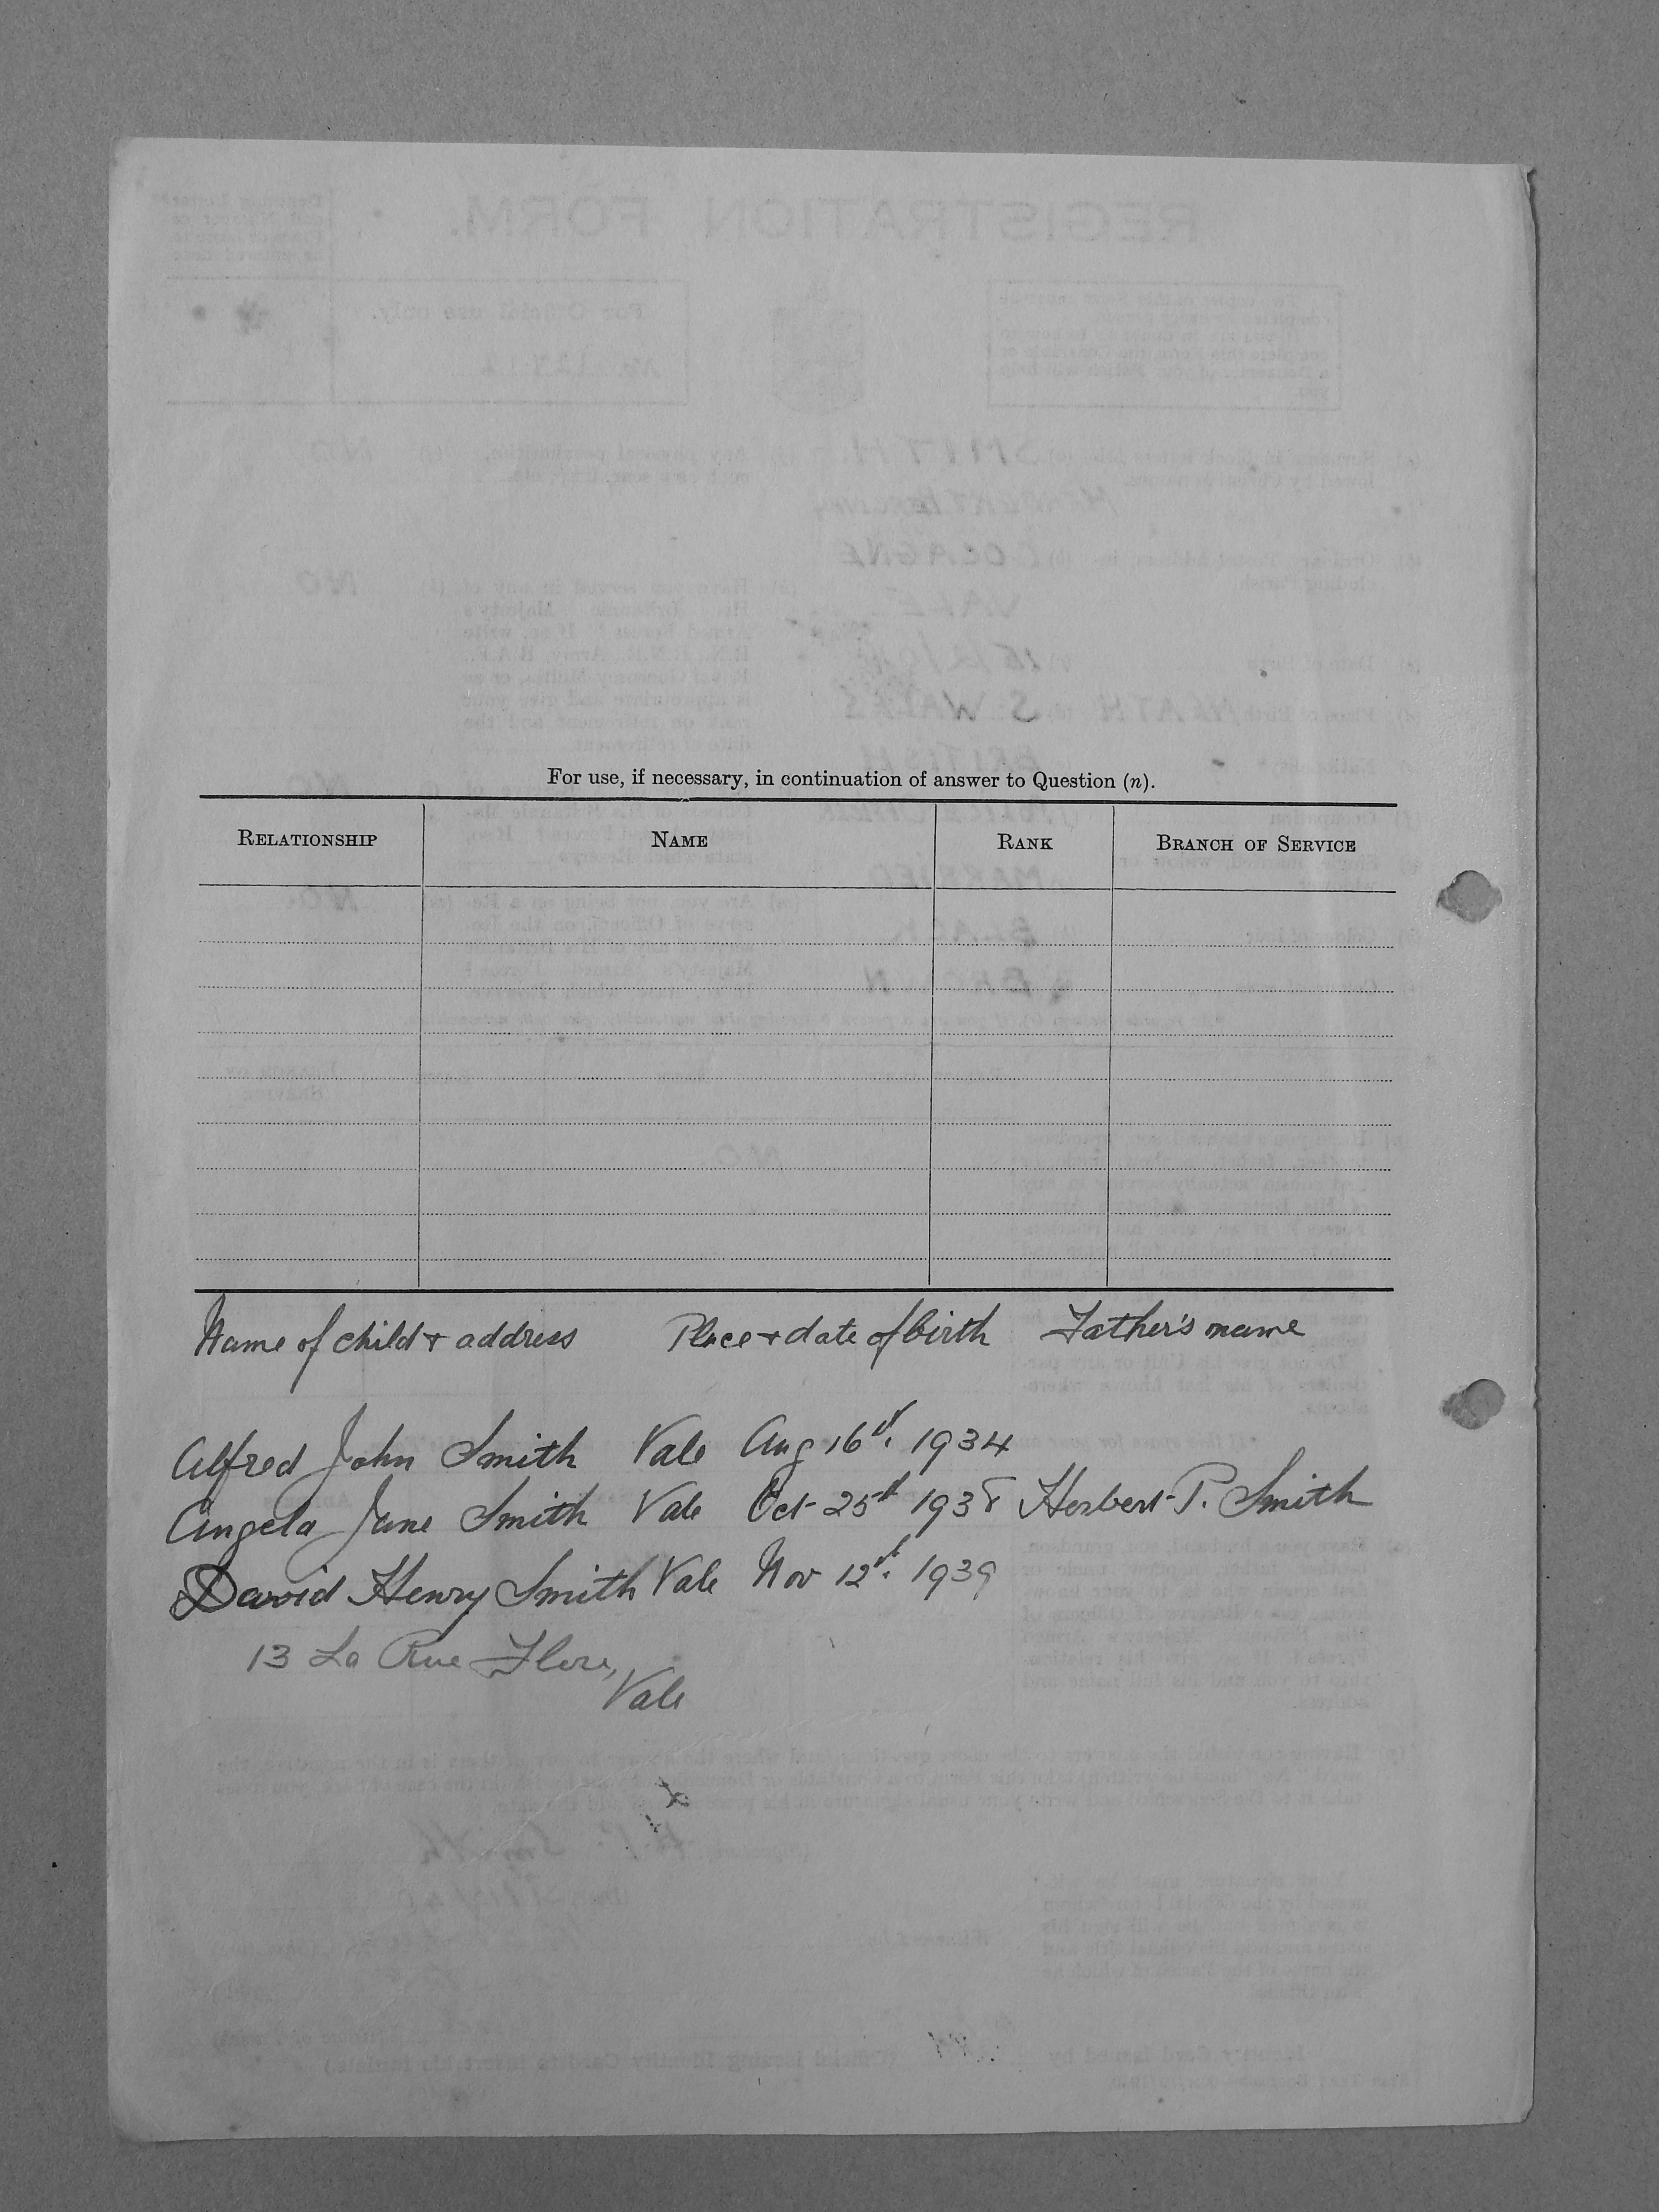 For use, if necessary, in continuation of answer to Question (n).
RELATIONSHIP NAME RANK BRANCH OF SERVICE
Name of child + address Place + date of birth Father's name
Alfred John Smith Vale Aug 16th. 1934
Angela Jane Smith Vale Oct 25th 1938 Herbert P. Smith
David Henry Smith Vale Nov 12th. 1939
13 La Rue Flere,
Vale